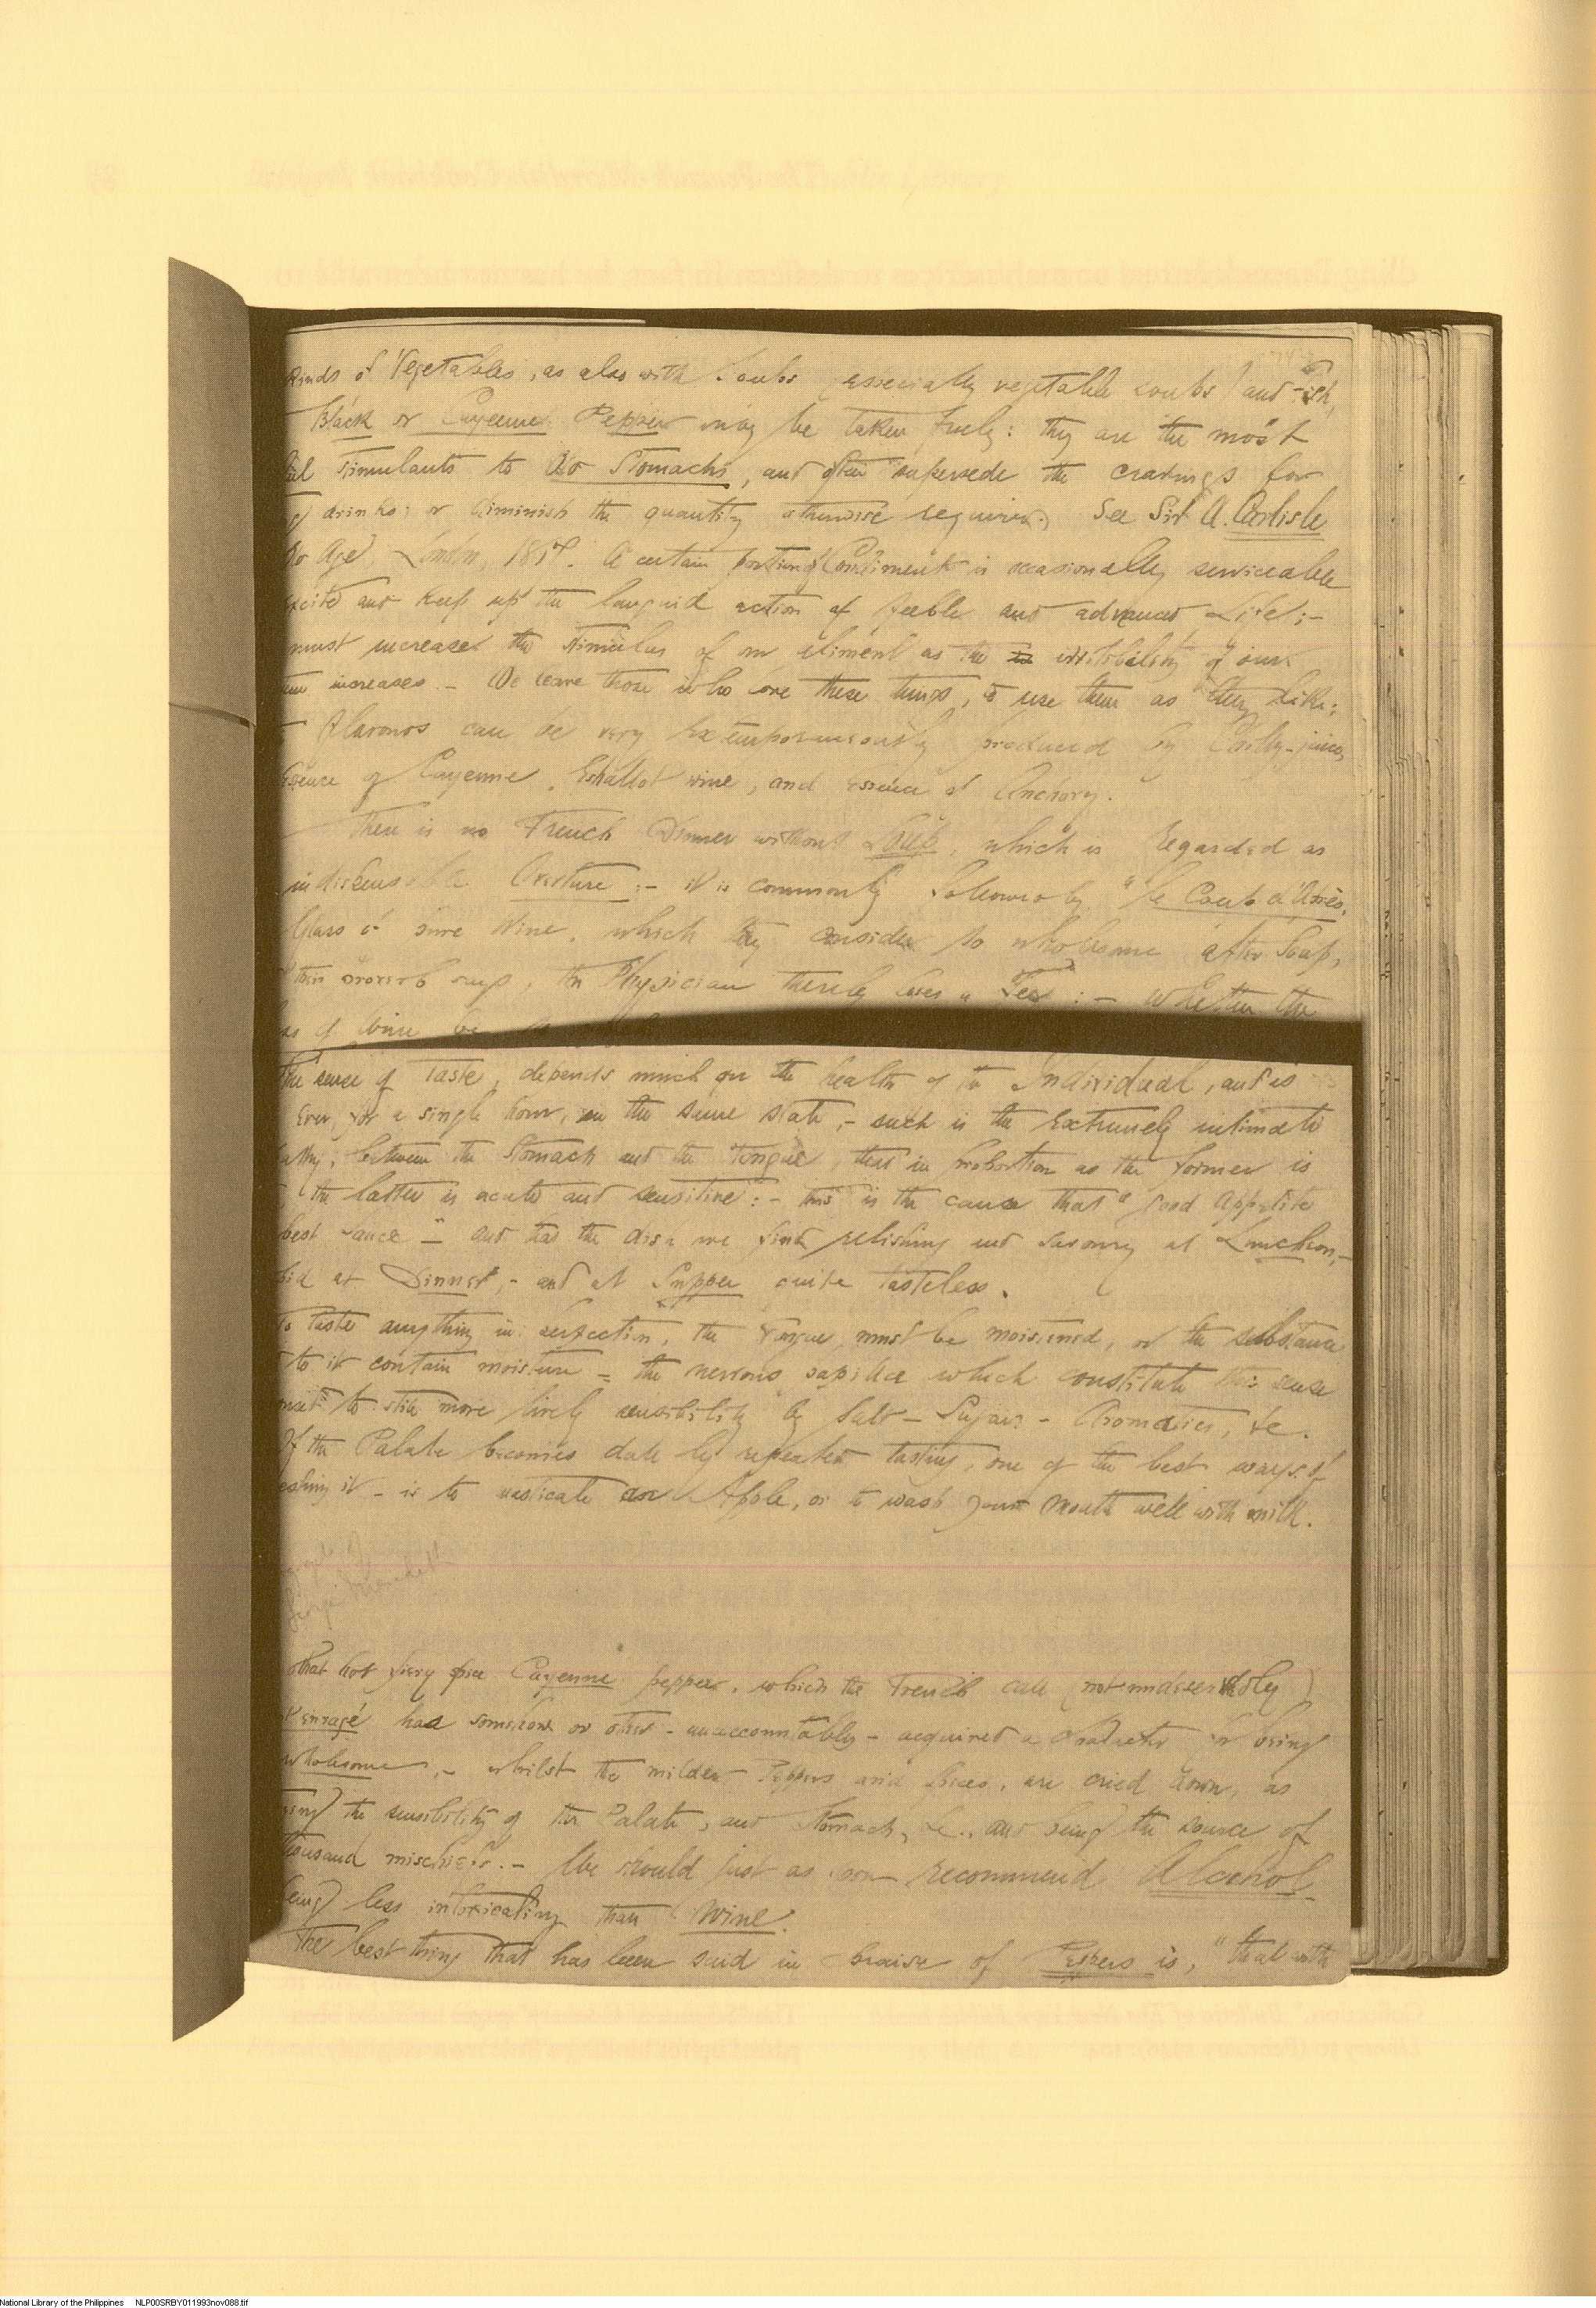 kinds of Vegetables, as also with Soups (especially vegetable soups) and Fish,
Black or Cayenne Pepper may be taken freely: they are the most
ful stimulants to Old Stomachs, and often supersede the cravings for
g drinks: or diminish the quantity otherwise required. See Sir A. Carlisle
Old Age, London, 1817. A certain portion of Condiment is occasionally serviceable
excite and keep up the languid action of feeble and advanced Life:-
must increase the stimulus of our aliment as the irritability of our
increases. - We leave those who love these things, to use them as they like;
Flavours can be very extemporaneously produced by Chilly-juice,
essence of Cayenne, Eshallot wine, and essence of Anchovy.
There is no French Dinner without Soup, which is regarded as
indispensable Overture:- it is commonly followed by "le Coup d'Après,
Glass of pure Wine, which they consider so wholesome after Soup,
their proverb says, the Physician thereby loses a Fee:- Whether the
of Wine be
The sense of Taste, depends much on the health of the Individual, and is
Ever, for a single hour, in the same state,- such is the Extremely intimate
athy, between the Stomach and the Tongue, that in proportion as the former is
the latter is acute and sensitive:- this is the cause that "good Appetite
best sauce" - and that the dish we find relishing and savoury at Luncheon,-
pid at Dinner,- and at Supper quite tasteless.
To Taste anything in perfection, the Tongue must be moistened, or the substance
to it contain moisture - the nervous papillæ which constitute this sense
to still more lively sensibility by Salt - Sugar - Aromatics, &c.
If the Palate becomes dull by repeated tasting, one of the best ways of
eshing it - is to masticate an Apple, or to wash your mouth well with milk.
that hot fiery spice Cayenne pepper, which the French call (not undeservedly)
enragé has somehow or other - unaccountably - acquired a character for being
wholesome,- whilst the milder Peppers and Spices, are cried down, as
ying the sensibility of the Palate, and Stomach, &c., and being the source of
thousand mischiefs.- We should just as soon recommend Alcohol
being less intoxicating than Wine.
The best thing that has been said in praise of Peppers is, "that with
National Library of the Philippines NLP00SRBY011993nov088.tif